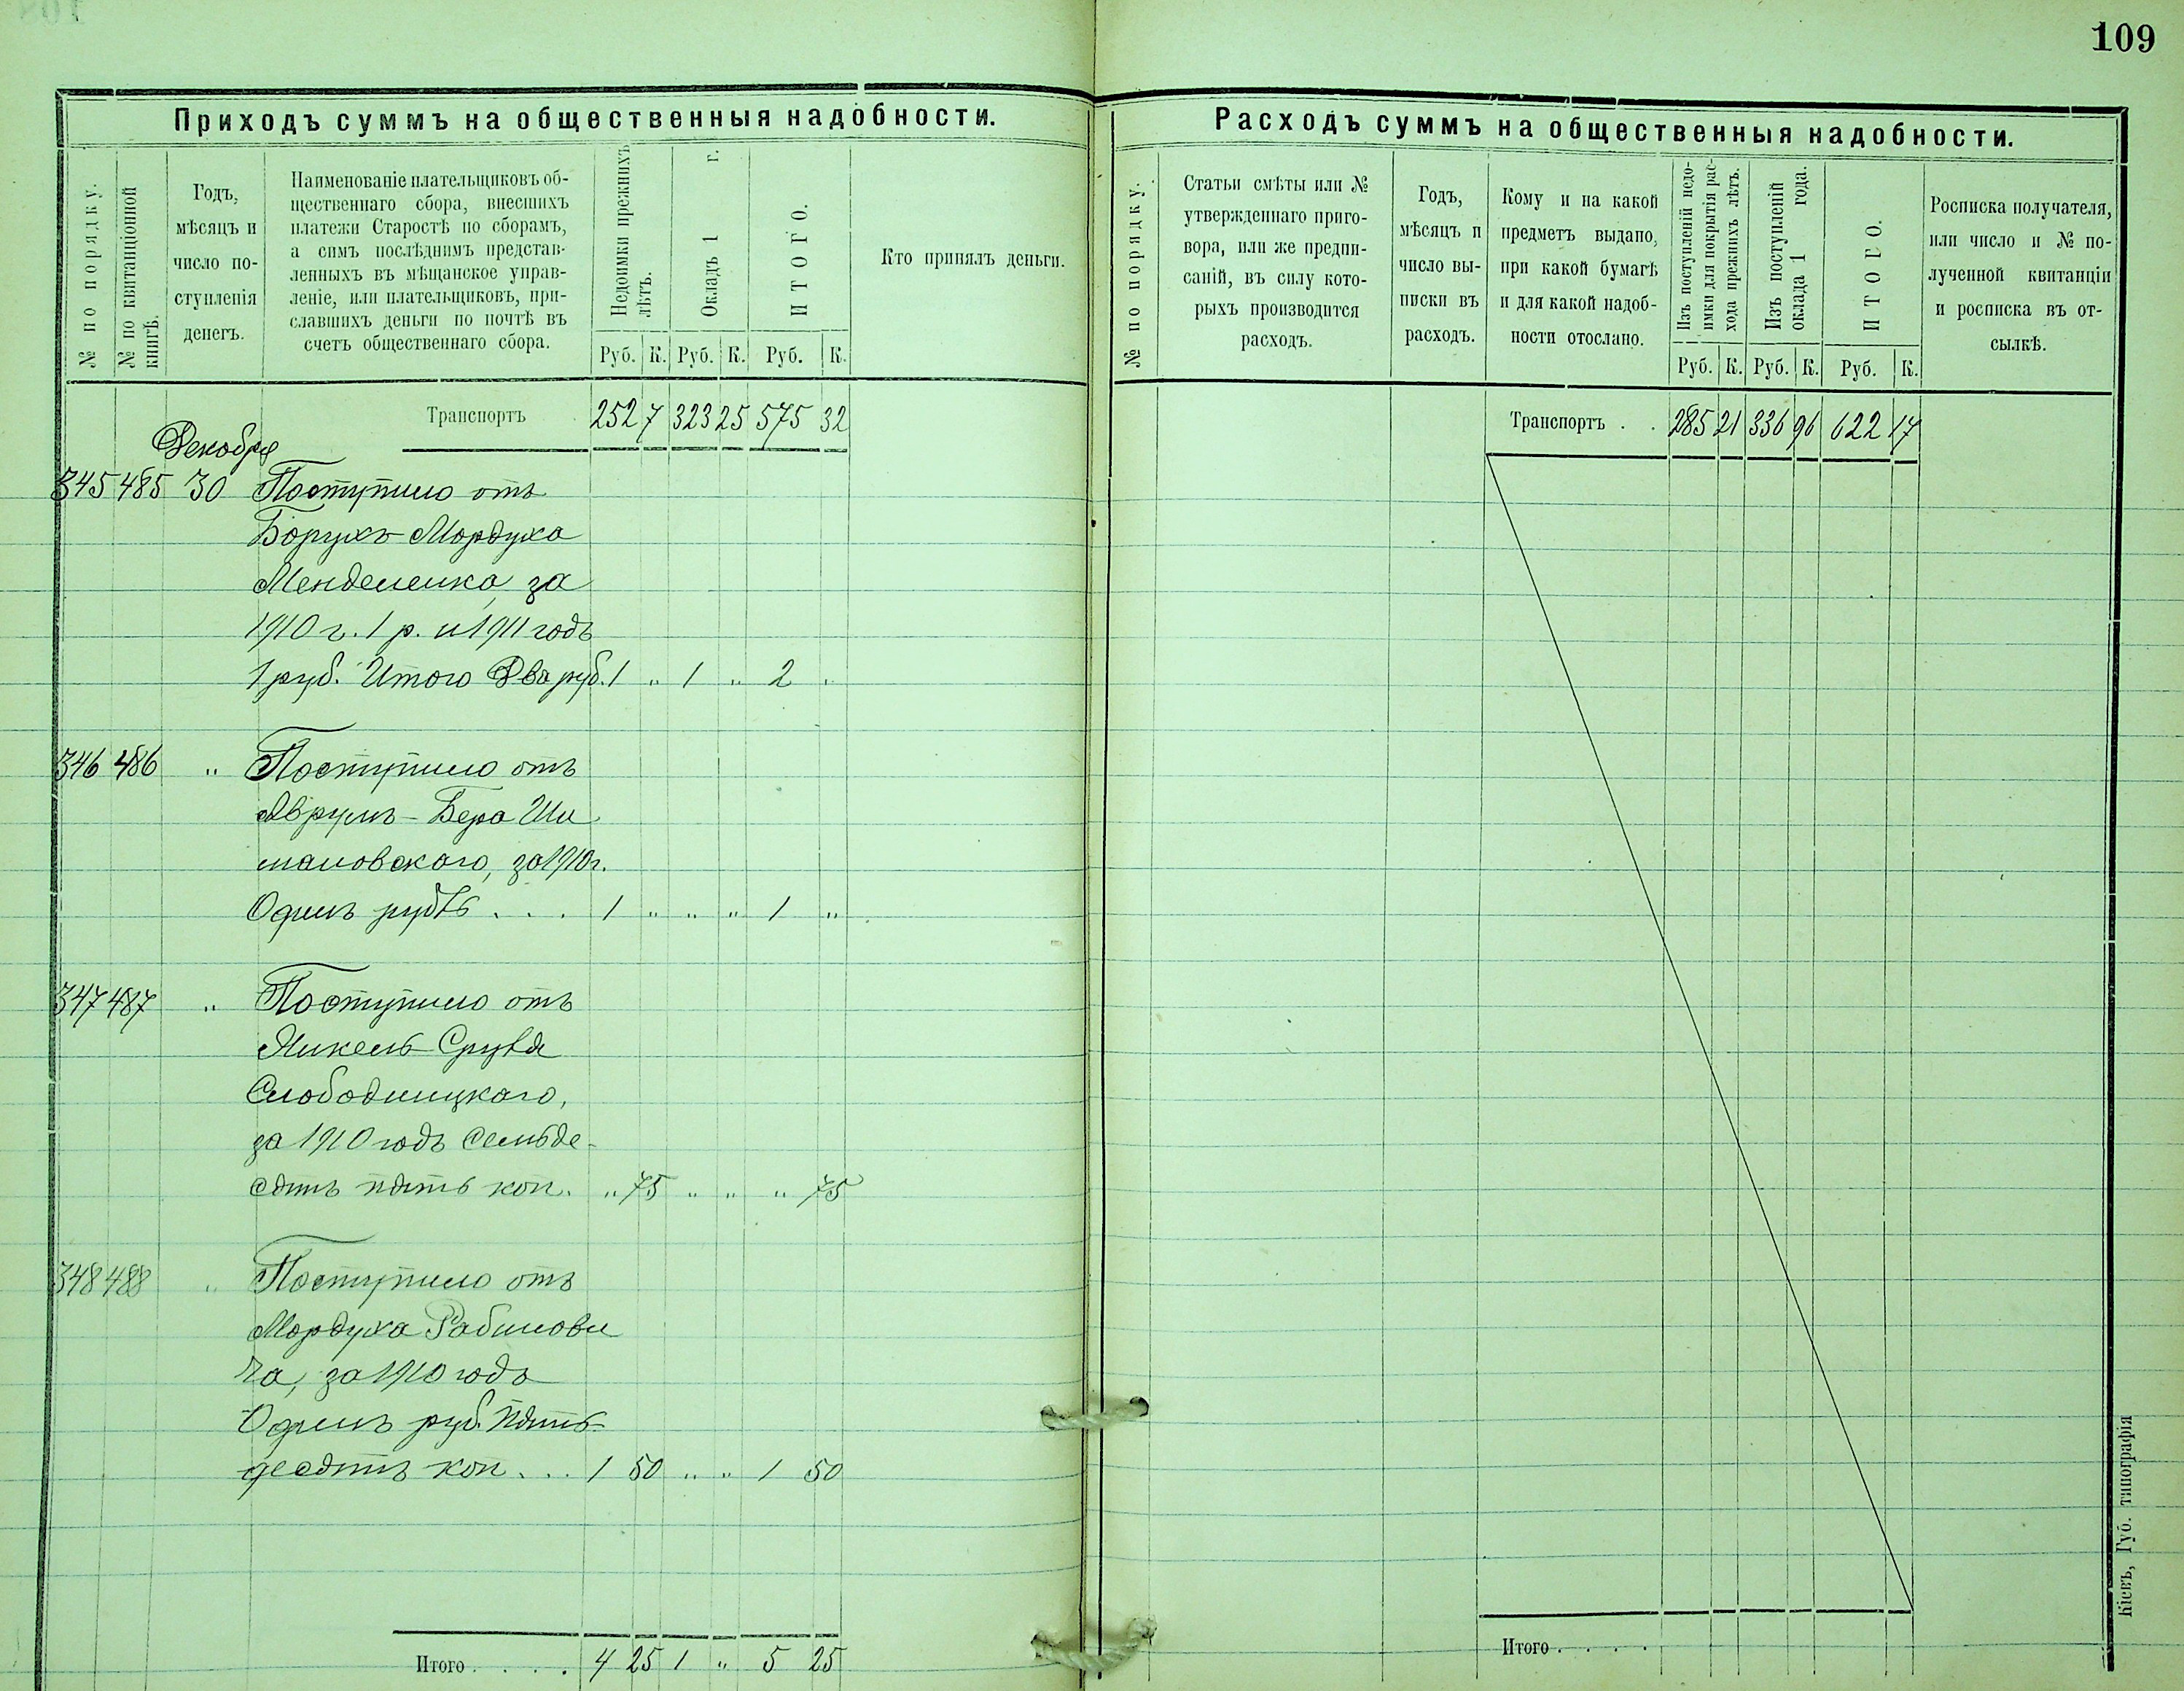 109
Приходъ суммъ на общественныя надобности.
№ по порядку.
№ по квитанціонной
книгѣ.
Годъ,
мѣсяцъ и
число по-
ступленія
денегъ.
Наименованіе плательщиковъ об-
щественнаго сбора, внесшихъ
платежи Старостѣ по сборамъ,
а симъ послѣднимъ представ-
ленныхъ въ мѣщанское управ-
леніе, или плательщиковъ, при-
славшихъ деньги по почтѣ въ
счетъ общественнаго сбора.
Недоимки прежнихъ
лѣтъ.
Окладъ 1 г.
ИТОГО.
Кто принялъ деньги.
Руб. К. Руб. К. Руб. К.
Транспортъ 252 7 323 25 575 32
Декабря
345 485 30 Поступило отъ
Борухъ-Мордуха
за
1910 г. 1 р. и 1911 годъ
1 руб. Итого Два руб. 1 „ 1 „ 2 „
346 486 „ Поступило отъ
Аврумъ-Бера Ши
мановского, за 1910 г.
Одинъ рубль . . . 1 „ „ „ 1 „
347 487 „ Поступило отъ
Янкель-Сруля
Слободницкаго,
за 1910 годъ семьде-
сятъ пять коп. „ 75 „ „ „ 75
348 488 „ Поступило отъ
Мордуха Рабинови
ча, за 1910 годъ
Одинъ руб. пять-
десятъ коп . . . 1 50 „ „ 1 50
Итого . . . . 4 25 1 „ 5 25
Расходъ суммъ на общественныя надобности.
№ по порядку.
Статьи смѣты или №
утвержденнаго приго-
вора, или же предпи-
саній, въ силу кото-
рыхъ производится
расходъ.
Годъ,
мѣсяцъ и
число вы-
писки въ
расходъ.
Кому и на какой
предметъ выдано,
при какой бумагѣ
и для какой надоб-
ности отослано.
Изъ поступленій недо-
имки для покрытія рас-
хода прежнихъ лѣтъ.
Изъ поступленій
оклада 1 года.
ИТОГО.
Росписка получателя,
или число и № по-
лученной квитанціи
и росписка въ от-
сылкѣ.
Руб. К. Руб. К. Руб. К.
Транспортъ . . 285 21 336 96 622 17
Итого . . . .
Кіевъ, Губ. типографія